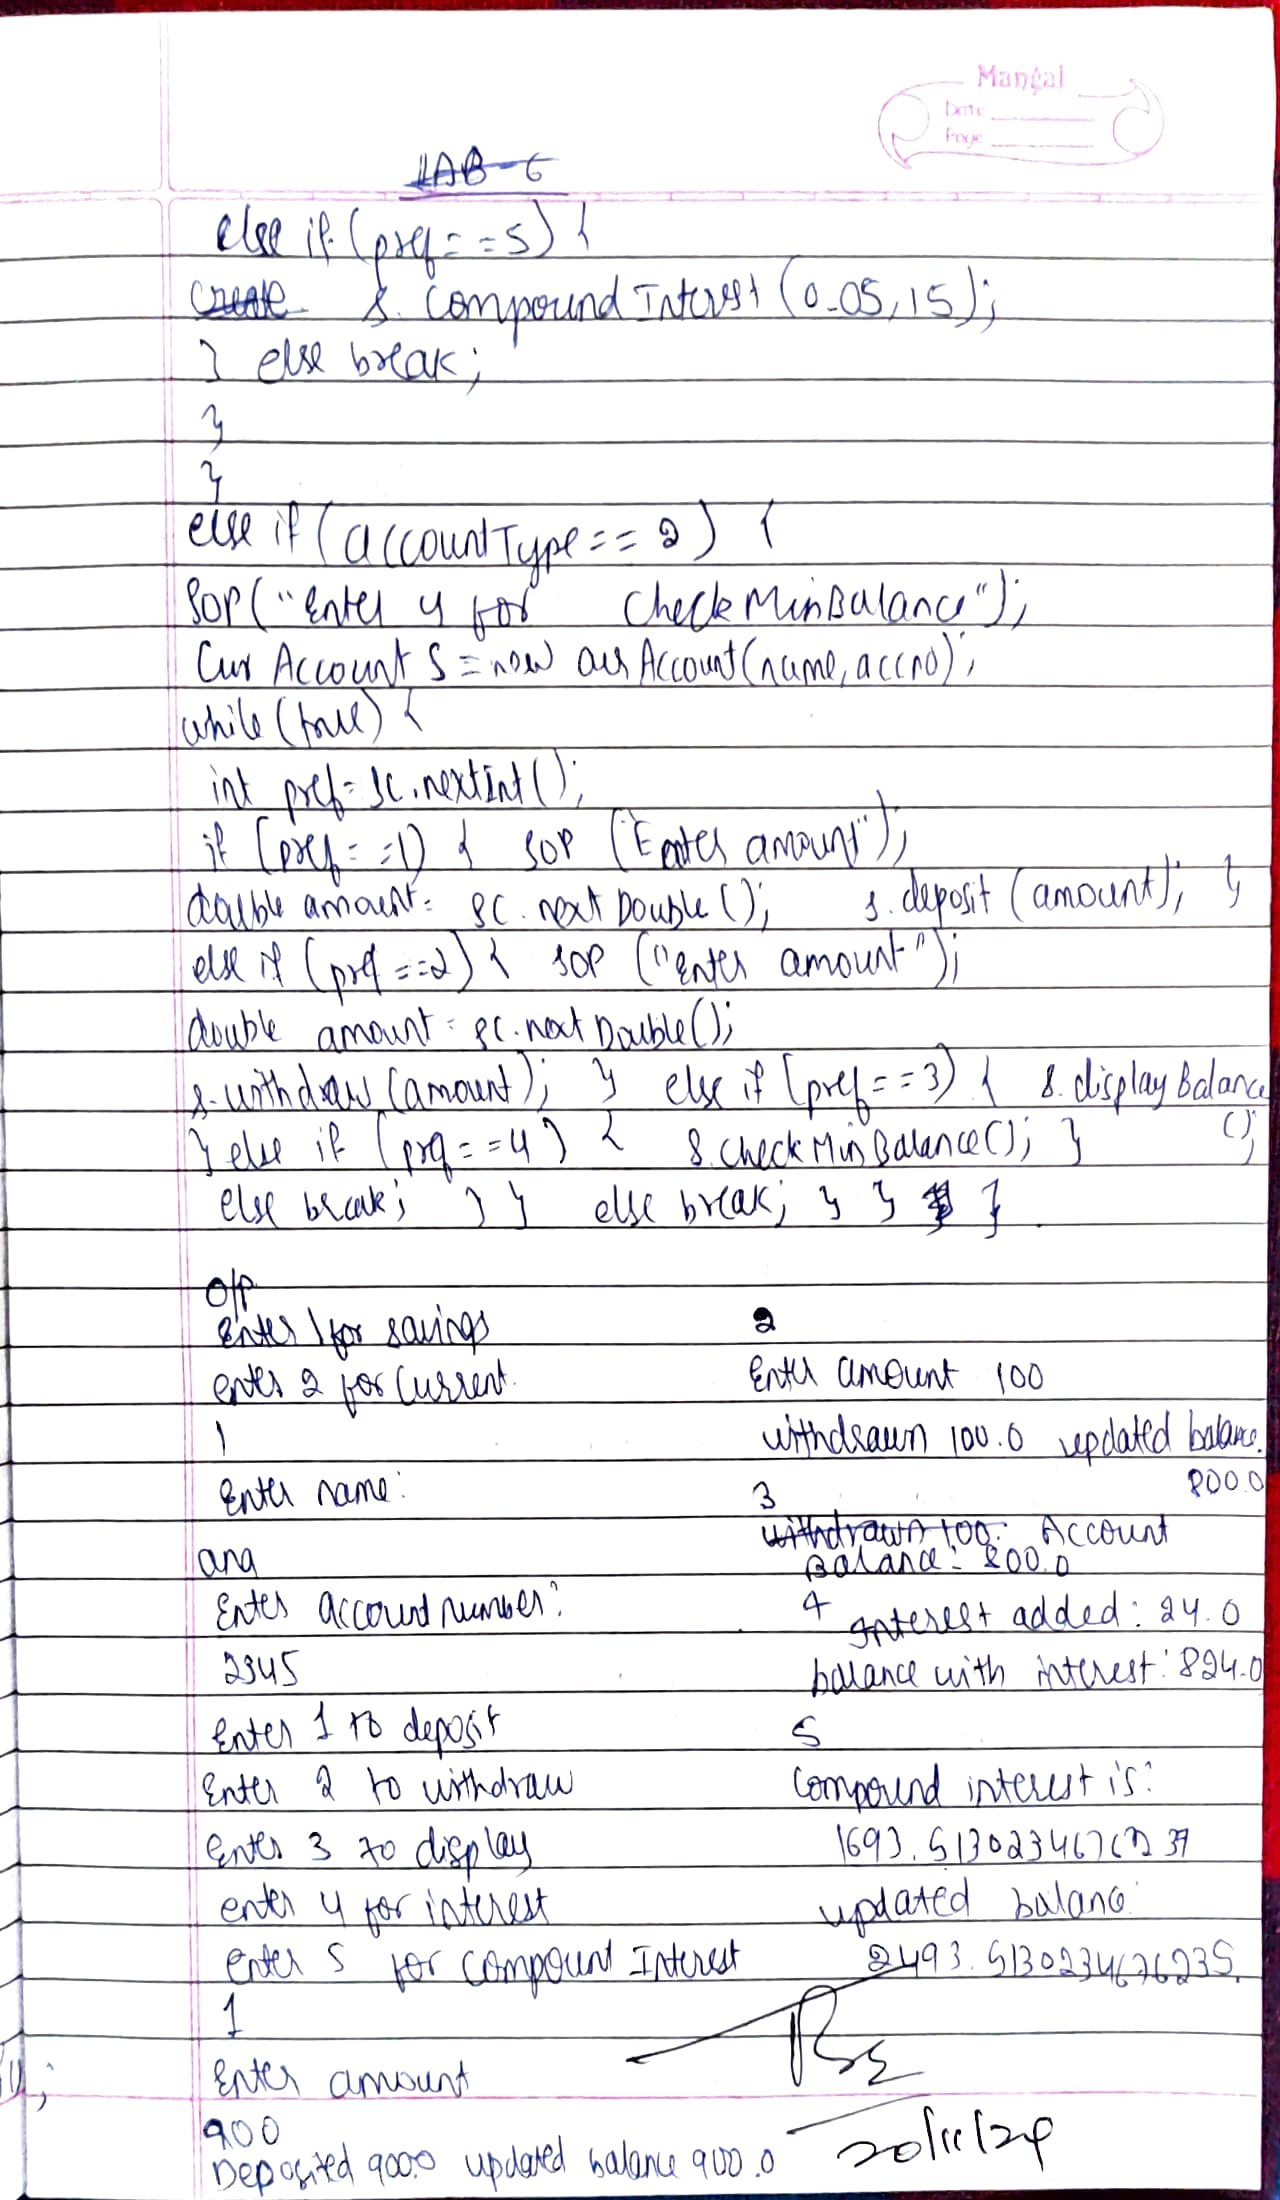 Mangal
Date
Page
LAB-6
else if (pref==5) {
create s.CompoundInterest (0.05,15);
} else break;
}
}
else if (accountType==2) {
SOP("Enter 4 for CheckMinBalance");
CurAccount s = new curAccount(name,accno);
while (true) {
int pref=sc.nextInt();
if (pref==1) { SOP ("Enter amount");
double amount= sc.nextDouble(); s.deposit (amount); }
else if (pref==2) { SOP ("enter amount");
double amount=sc.nextDouble();
s.withdraw(amount); } else if (pref==3) { s.displayBalance
} else if (pref==4) { s.checkMinBalance(); } ();
else break; } } else break; } } }
O/P
Enter 1 for savings
enter 2 for Current.
1
Enter name:
ana
Enter account number:
2345
Enter 1 to deposit
Enter 2 to withdraw
Enter 3 to display
enter 4 for interest
enter 5 for compount Interest
1
Enter amount
900
Deposited 900.0 updated balance 900.0
2
Enter amount 100
withdrawn 100.0 updated balance.
800.0
3
withdrawn 100. Account
Balance: 800.0
4 Interest added: 24.0
balance with interest: 824.0
5
Compound interest is:
updated balance:
20/11/24